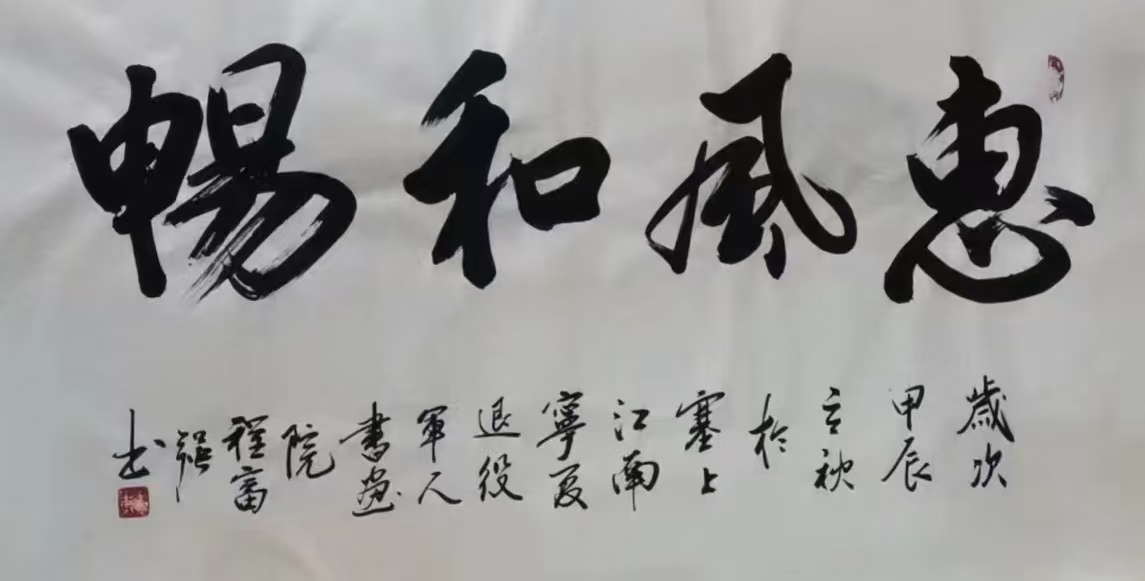 惠風和暢
歲次
甲辰
立秋
於
塞上
江南
寧夏
退役
軍人
書畫
院
程富
书